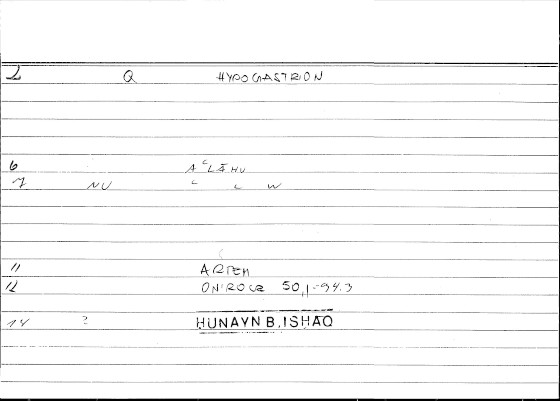 2 Q HYPOGASTRION
6 AʿLĀHU
7 NU ʿ L W
11 ARTEM
12 ONIROCR 50,1-94.3
14 2 HUNAYN B. ISHAQ